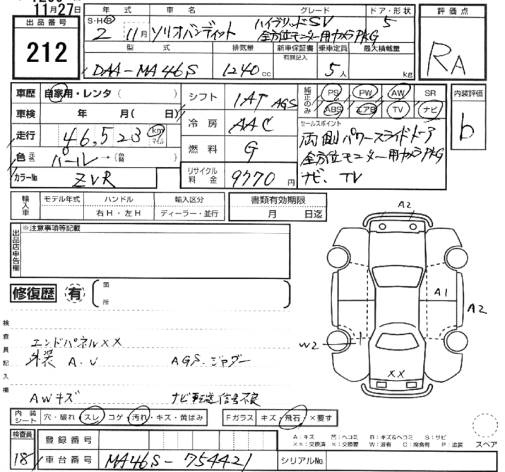 11月27日
出品番号
212
年式 車名 グレード ドア・形状
S・H・R 2年 11月 ソリオバンディット ハイブリッドSV 5
全方位モニター用カメラPKG
型式 排気量 新車保証書 有限記入 乗車定員 最大積載量
DAA-MA46S 1240cc 5人 kg
評価点
RA
車歴 自家用・レンタ( )
車検 年 月(日)
走行 46,523 km マイル
色 元色 パール→(替)
カラーNo ZVR
シフト 1AT AGS
冷房 AAC
燃料 G
リサイクル料金 9770円
純正のみ PS PW AW SR
ABS エアB TV ナビ
セールスポイント
両側パワースライドドア
全方位モニター用カメラPKG
ナビ、TV
内装評価
b
輸入車 モデル年式 ハンドル 右H・左H 輸入区分 ディーラー・並行
書類有効期限 月 日迄
出品店申告欄
※注意事項等記載
修復歴 有 箇所
検査員記入欄
エンドパネルXX
外装 A.U AGS.ジャダー
AWキズ ナビ転送信号不良
A2
A1
A2
W2
XX
内装シート 穴・破れ・スレ・コゲ・汚れ・キズ・黄ばみ
Fガラス キズ・飛石・×要す
スペア
検査員 18
登録番号
車台番号 MA46S-754421
シリアルNo